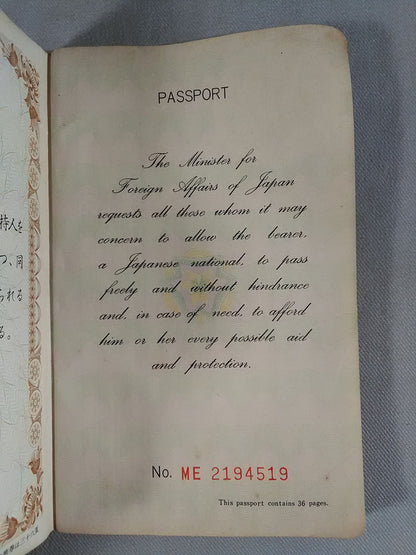 PASSPORT
The Minister for
Foreign Affairs of Japan
requests all those whom it may
concern to allow the bearer,
a Japanese national, to pass
freely and without hindrance
and, in case of need, to afford
him or her every possible aid
and protection.
No. ME 2194519
This passport contains 36 pages.
持人を
つ、同
られる
る。